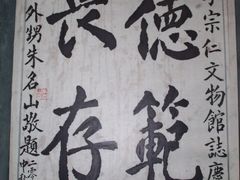 李宗仁文物館誌慶
德範
長存
外甥朱名山敬題
二零